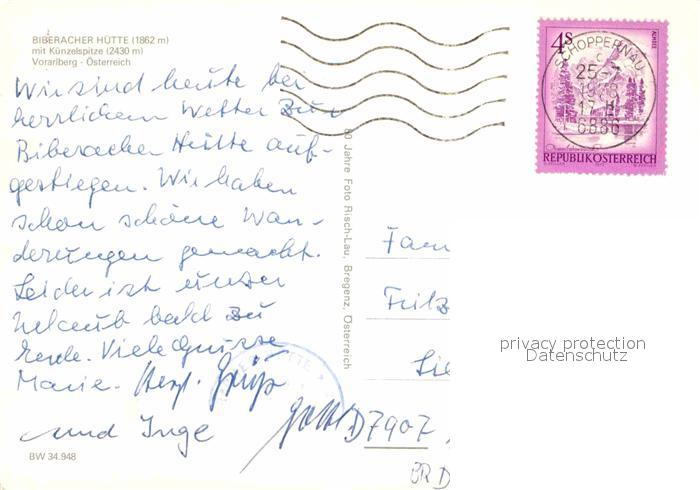 BIBERACHER HÜTTE (1862 m)
mit Künzelspitze (2430 m)
Vorarlberg - Österreich
Wir sind heute bei
herrlichem Wetter zur
Biberacher Hütte auf-
gestiegen. Wir haben
schon schöne Wan-
derungen gemacht.
Leider ist unser
Urlaub bald zu
Ende. Viele Grüsse
Marie. Herzl. Grüße
und Inge
BW 34.948
60 Jahre Foto Risch-Lau, Bregenz, Österreich
4S
REPUBLIK ÖSTERREICH
SCHOPPERNAU
25.-7
1978
17
6886
Fam
Fritz
D 7907
BRD
privacy protection
Datenschutz